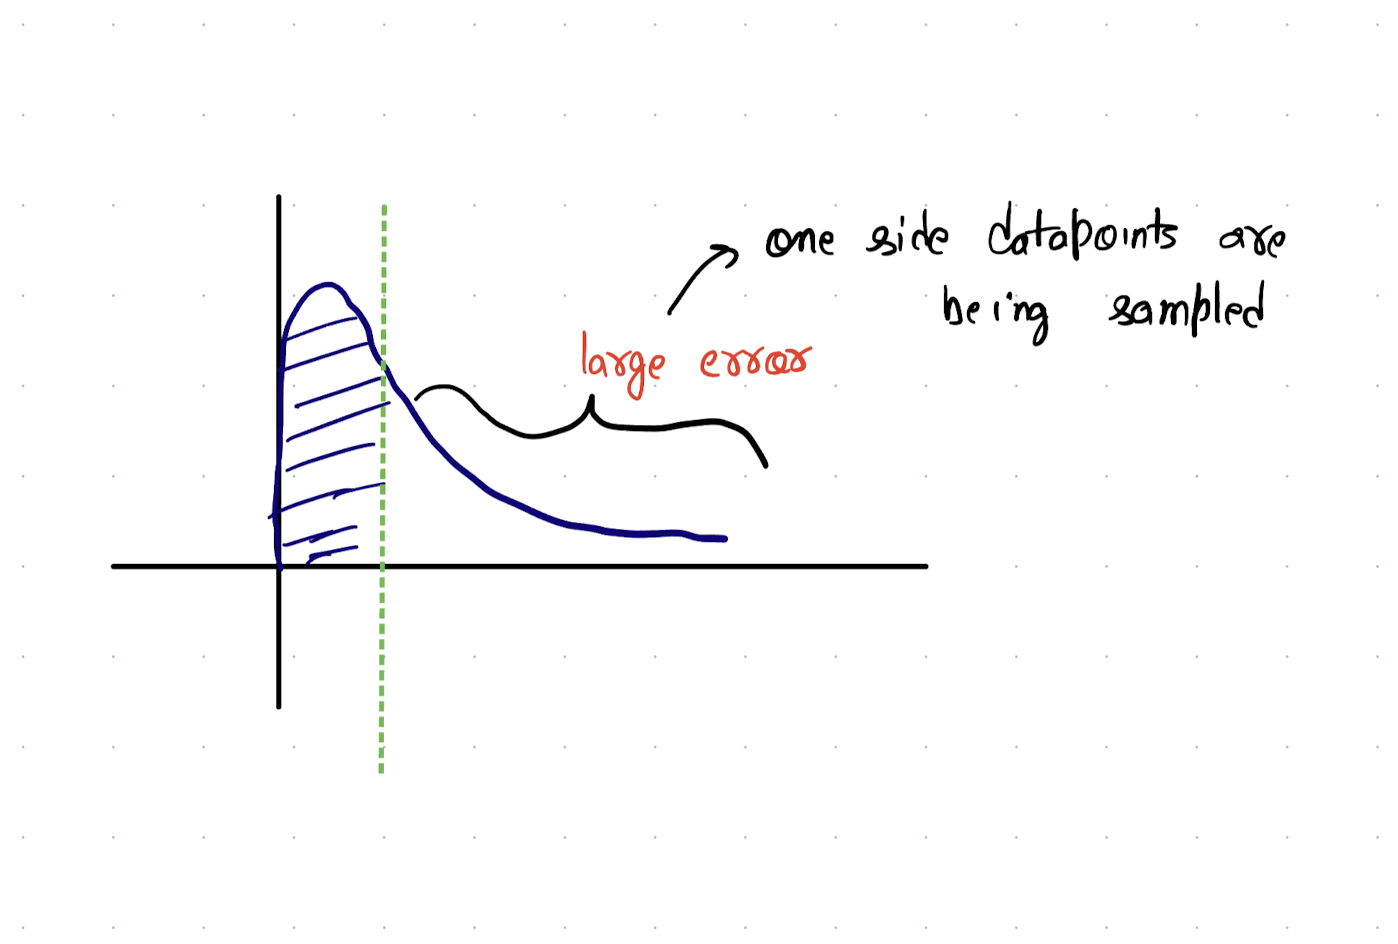 one side datapoints are
being sampled
large error